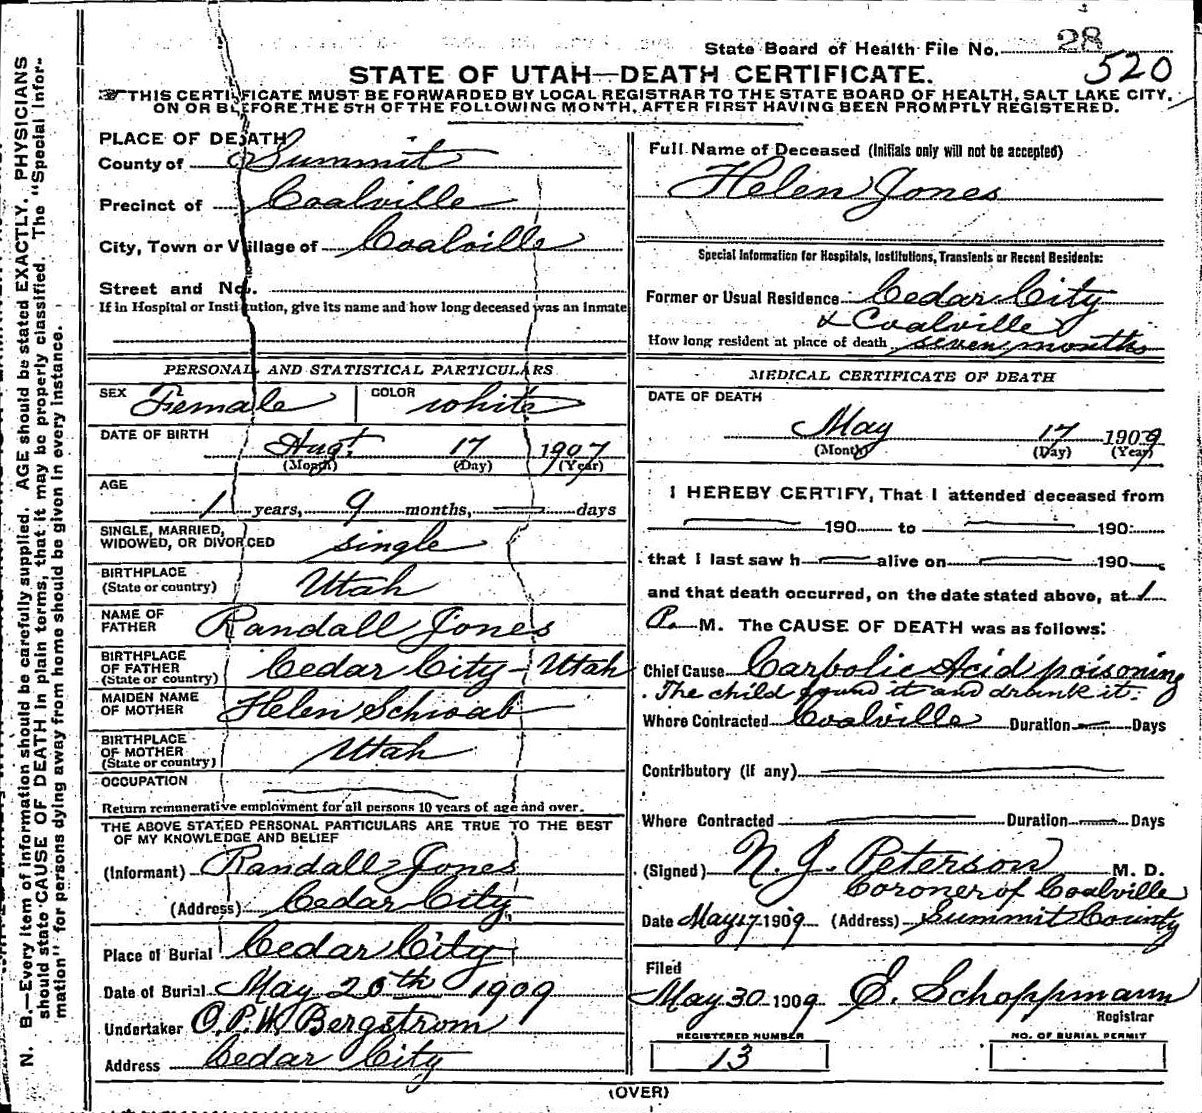 State Board of Health File No. 28
520
STATE OF UTAH—DEATH CERTIFICATE.
THIS CERTIFICATE MUST BE FORWARDED BY LOCAL REGISTRAR TO THE STATE BOARD OF HEALTH, SALT LAKE CITY,
ON OR BEFORE THE 5TH OF THE FOLLOWING MONTH, AFTER FIRST HAVING BEEN PROMPTLY REGISTERED.
N. B.—Every item of information should be carefully supplied. AGE should be stated EXACTLY. PHYSICIANS
should state CAUSE OF DEATH in plain terms, that it may be properly classified. The "Special Infor-
mation" for persons dying away from home should be given in every instance.
PLACE OF DEATH
County of Summit
Precinct of Coalville
City, Town or Village of Coalville
Street and No.
If in Hospital or Institution, give its name and how long deceased was an inmate
PERSONAL AND STATISTICAL PARTICULARS
SEX Female COLOR white
DATE OF BIRTH
Augt. 17 1907
(Month) (Day) (Year)
AGE
1 years, 9 months, — days
SINGLE, MARRIED,
WIDOWED, OR DIVORCED single
BIRTHPLACE
(State or country) Utah
NAME OF
FATHER Randall Jones
BIRTHPLACE
OF FATHER
(State or country) Cedar City - Utah
MAIDEN NAME
OF MOTHER Helen Schwab
BIRTHPLACE
OF MOTHER
(State or country) Utah
OCCUPATION
Return remunerative employment for all persons 10 years of age and over.
THE ABOVE STATED PERSONAL PARTICULARS ARE TRUE TO THE BEST
OF MY KNOWLEDGE AND BELIEF
(Informant) Randall Jones
(Address) Cedar City,
Place of Burial Cedar City
Date of Burial May 20th 1909
Undertaker O.P.W. Bergstrom
Address Cedar City
Full Name of Deceased (Initials only will not be accepted)
Helen Jones
Special Information for Hospitals, Institutions, Transients or Recent Residents:
Former or Usual Residence Cedar City
& Coalville
How long resident at place of death seven months
MEDICAL CERTIFICATE OF DEATH
DATE OF DEATH
May 17 1909
(Month) (Day) (Year)
I HEREBY CERTIFY, That I attended deceased from
— 190 to — 190
that I last saw h — alive on — 190
and that death occurred, on the date stated above, at 1
P. M. The CAUSE OF DEATH was as follows:
Chief Cause Carbolic Acid poisoning
The child found it and drank it.
Where Contracted Coalville Duration — Days
Contributory (if any)
Where Contracted — Duration — Days
(Signed) N. J. Peterson M. D.
Coroner of Coalville
Date May 17 1909 (Address) Summit County
Filed
May 30 1909 E. Schoppmann
Registrar
REGISTERED NUMBER
13
NO. OF BURIAL PERMIT
(OVER)